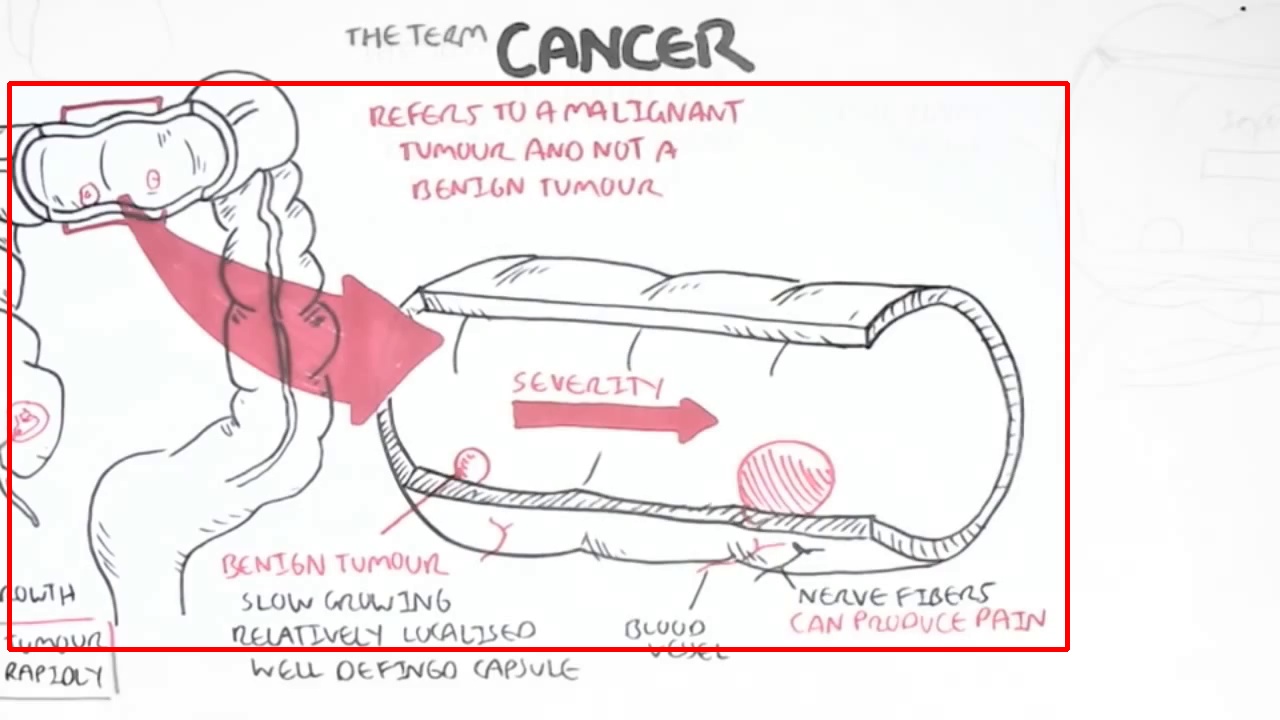 THE TERM CANCER
REFERS TO A MALIGNANT
TUMOUR AND NOT A
BENIGN TUMOUR
SEVERITY
BENIGN TUMOUR
SLOW GROWING
RELATIVELY LOCALISED
WELL DEFINED CAPSULE
BLOOD
VESSEL
NERVE FIBERS
CAN PRODUCE PAIN
OWTH
TUMOUR
RAPIDLY